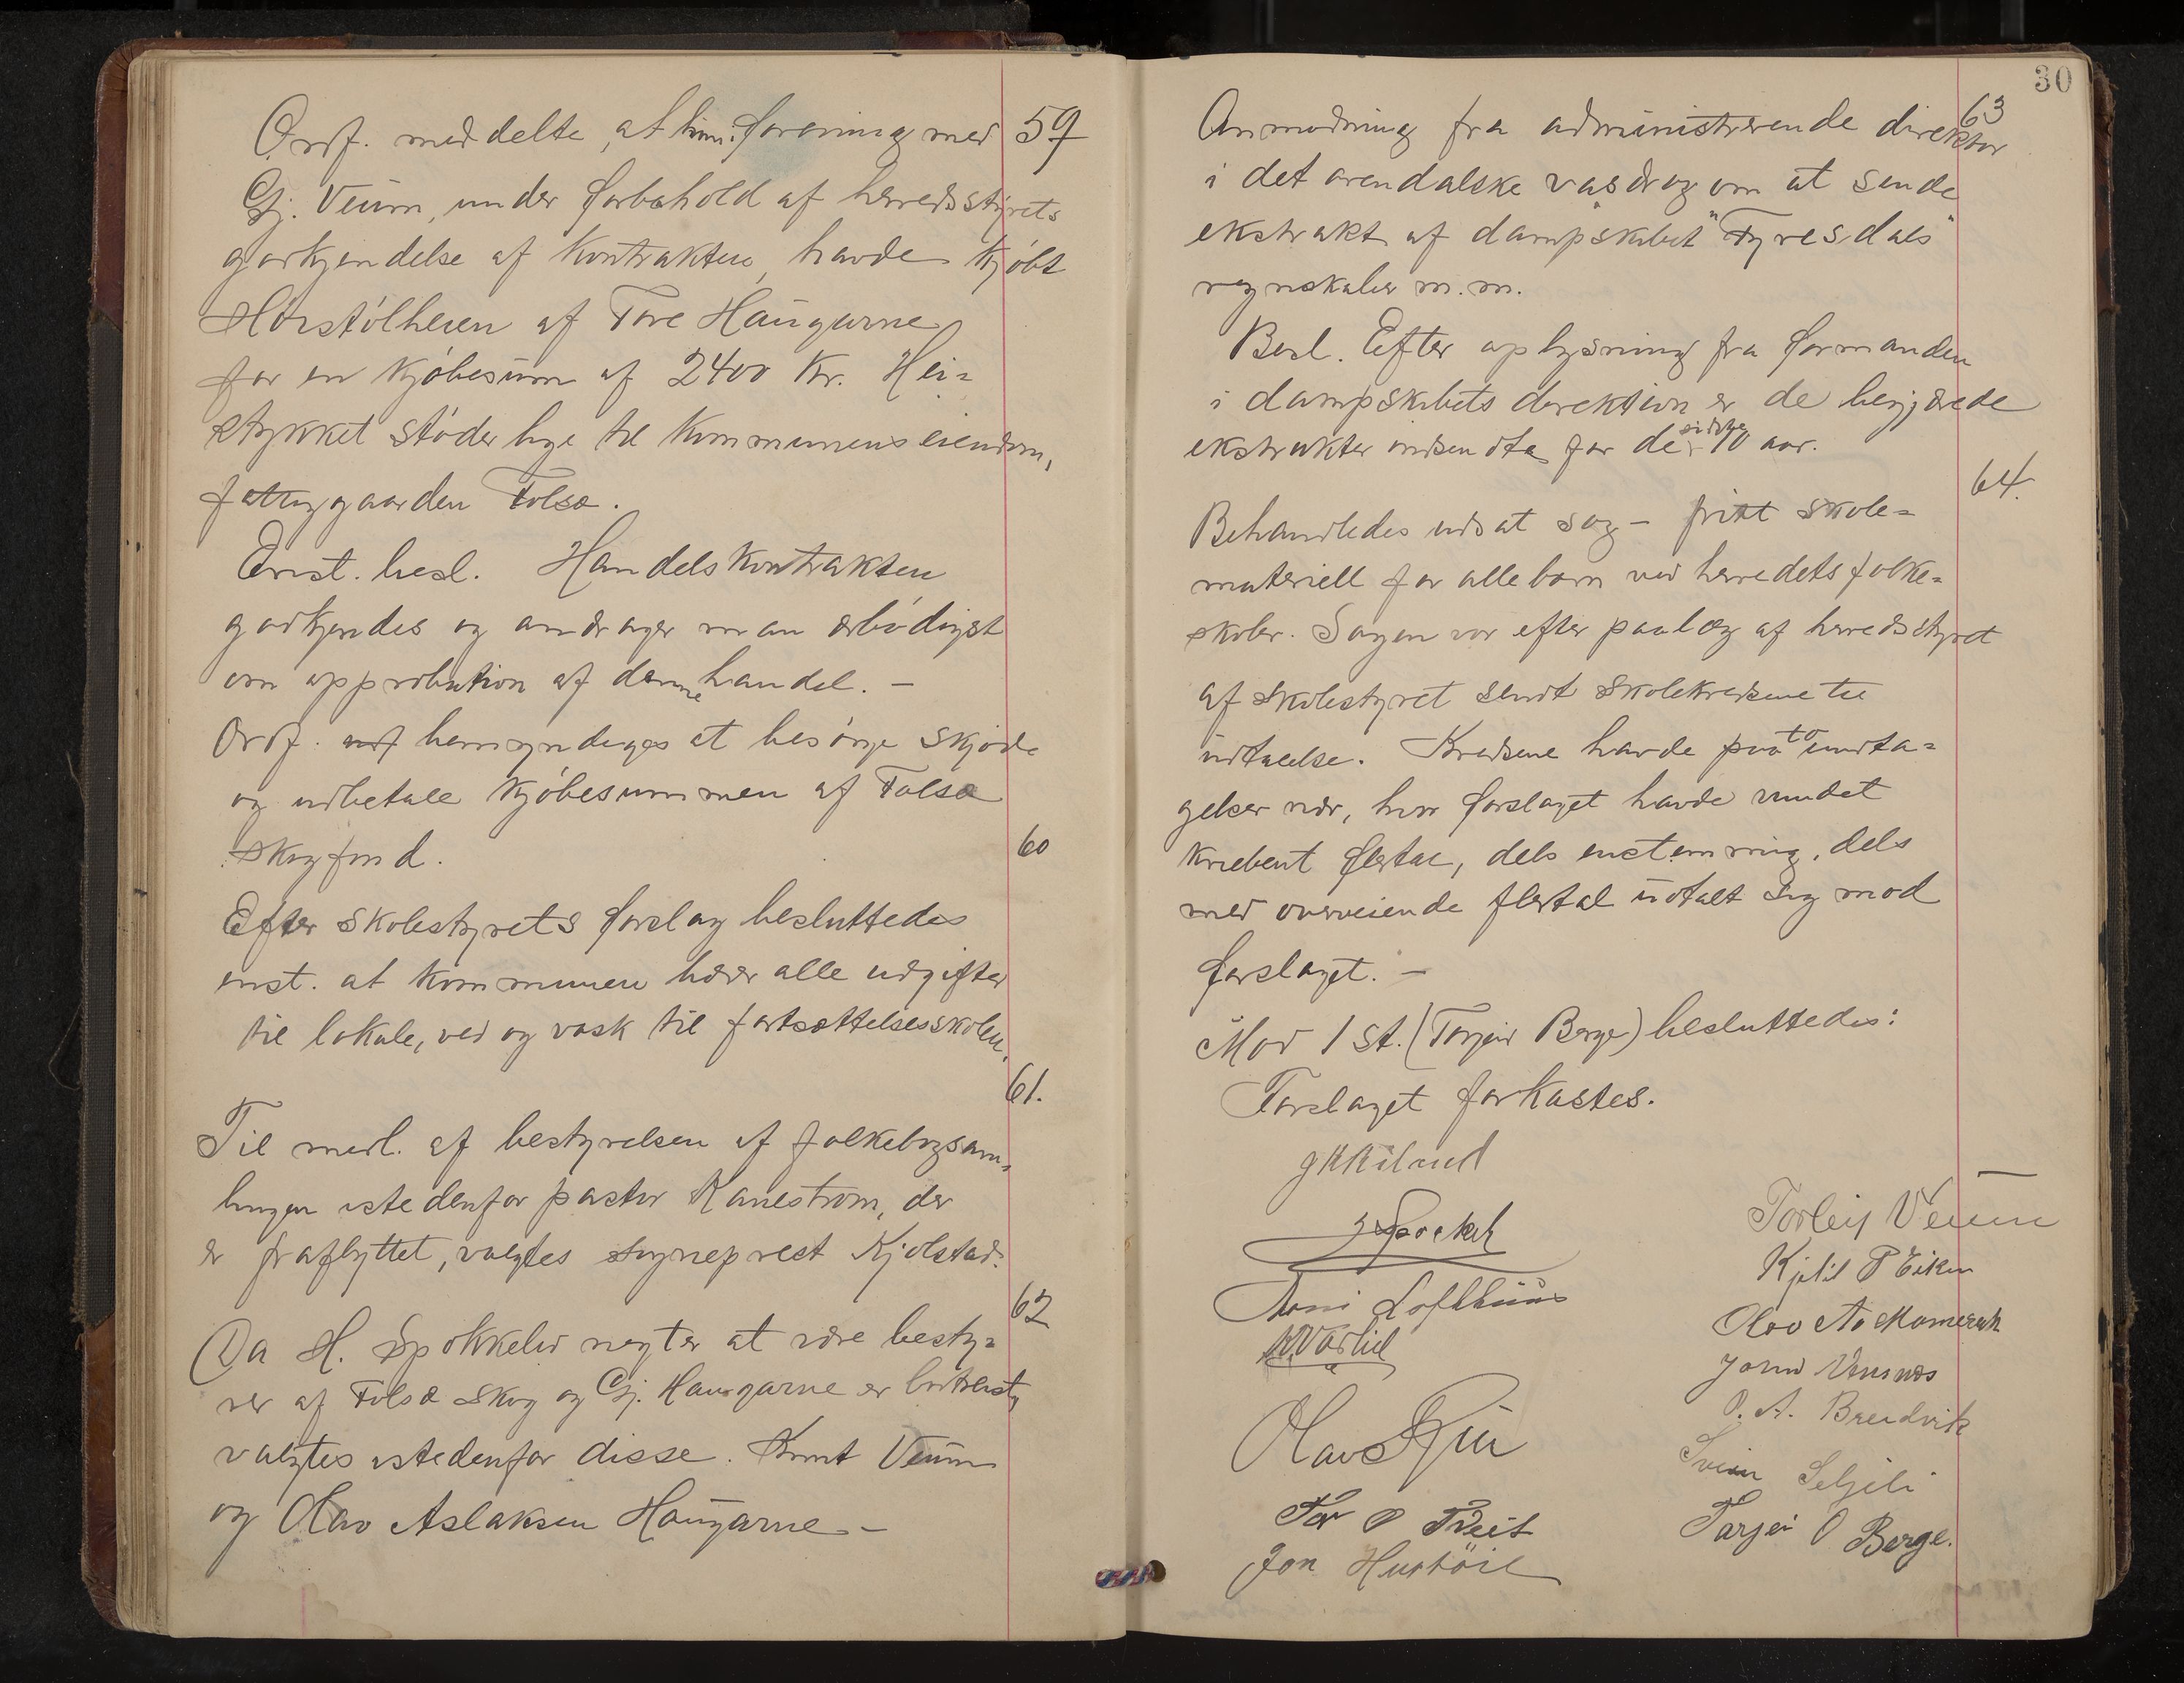 59
Ordf. meddelte, at han i forening med
Gj. Veum, under forbehold af herredsstyrets
godkjendelse af kontrakten, havde kjöbt
Hörstölheien af Tore Haugarne
for en kjöbesum af 2400 kr. Hei=
stykket stöder lige til kommunens eiendom,
fattiggaarden Folsæ.
Enst. besl. Handelskontrakten
godkjendes og andrager man ærbödigst
om approbation af denne handel. –
Ordf. bemyndiges at besörge skjöde
og udbetale kjöbesummen af Folsæ
skogfond.
60
Efter skolestyrets forslag besluttedes
enst. at kommunen bærer alle udgifter
til lokale, ved og vask til fortsættelsesskolen.
61.
Til medl. af bestyrelsen af folkebogsam=
lingen istedenfor pastor Kanestrøm, der
er fraflyttet, valgtes sogneprest Kjølstad.
62
Da H. Spokkelid negter at være besty=
rer af Folsæ skog og Gj. Haugarne er bortreist,
valgtes istedenfor disse. Knut Veum
og Olav Aslaksen Haugarne –
30
63
Anmodning fra administrerende direktør
i det arendalske vasdrag om at sende
ekstrakt af dampskibet "Fyresdals"
regnskaber m.m.
Besl. Efter oplysning fra formanden
i dampskibets direktion er de begjærede
ekstrakter indsendte for de sidste 10 aar.
64.
Behandledes udsat sag – fritt skole=
materiell for alle barn ved herredets folke=
skoler. Sagen var efter paalæg af herredsstyret
af skolestyret sendt skolekredsene til
udtalelse. Kredsene havde paa to undta=
gelser nær, hvor forslaget havde vundet
knebent flertal, dels enstemmig, dels
med overveiende flertal udtalt sig mod
forslaget. –
Mod 1 st. (Torgeir Berge) besluttedes:
Forslaget forkastes.
Torleif Veum
Kjetil P Eiken
O. A. Breidvik
Svein Seljeli
Tor O Tveit
Tarjei O Berge.
Jon